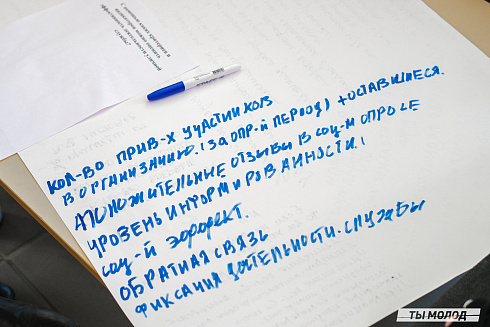 КОЛ-ВО ПРИВ-Х УЧАСТНИКОВ
В ОРГАНИЗАЦИЮ. (ЗА ОПР-Й ПЕРИОД) + ОСТАВШИЕСЯ.
ПОЛОЖИТЕЛЬНЫЕ ОТЗЫВЫ В СОЦ-М ОПРОСЕ
УРОВЕНЬ ИНФОРМИРОВАННОСТИ.
СОЦ-Й ЭФФЕКТ.
ОБРАТНАЯ СВЯЗЬ
ФИКСАЦИЯ ДЕЯТЕЛЬНОСТИ. СЛУЖБЫ
ТЫ МОЛОД